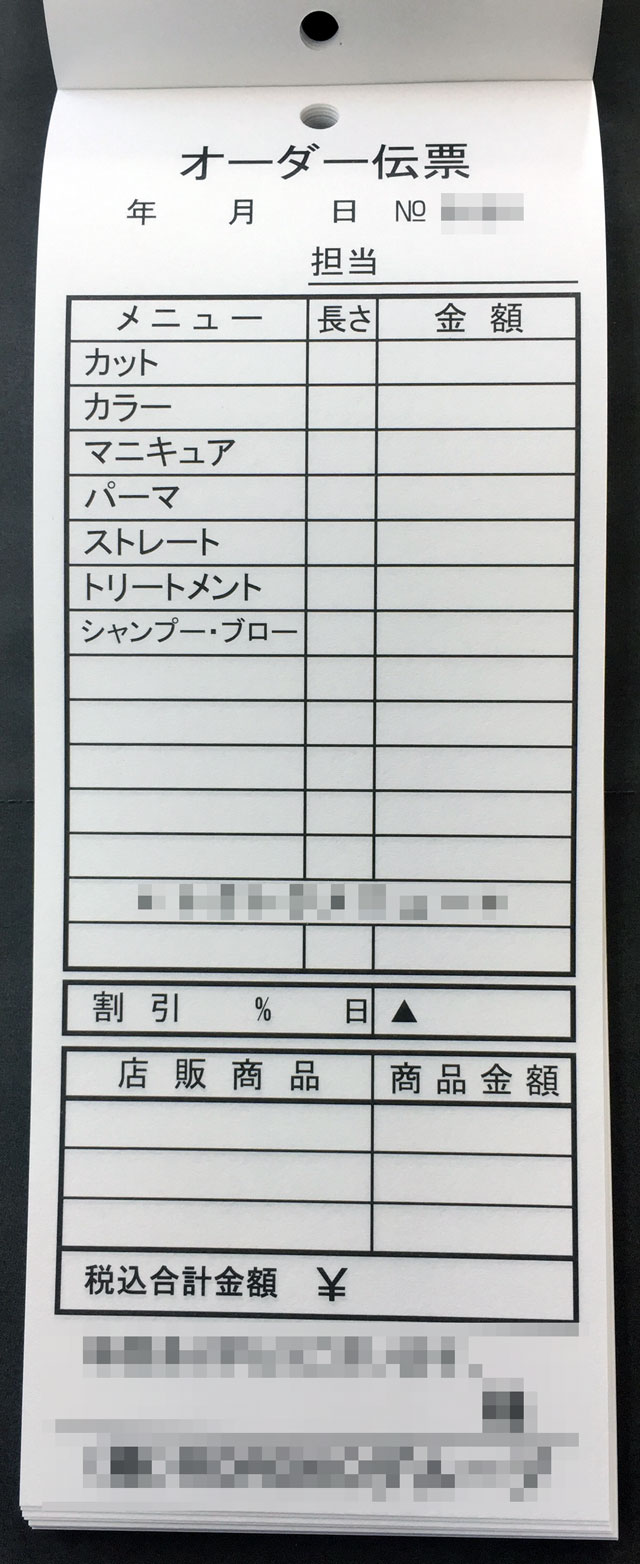 オーダー伝票
年 月 日 №
担当
メニュー 長さ 金額
カット
カラー
マニキュア
パーマ
ストレート
トリートメント
シャンプー・ブロー
割引 % 日 ▲
店販商品 商品金額
税込合計金額 ¥